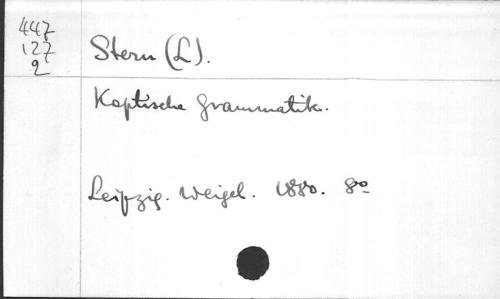 447
127
2
Stern (L).
Koptische Grammatik.
Leipzig. Weigel. 1880. 8º